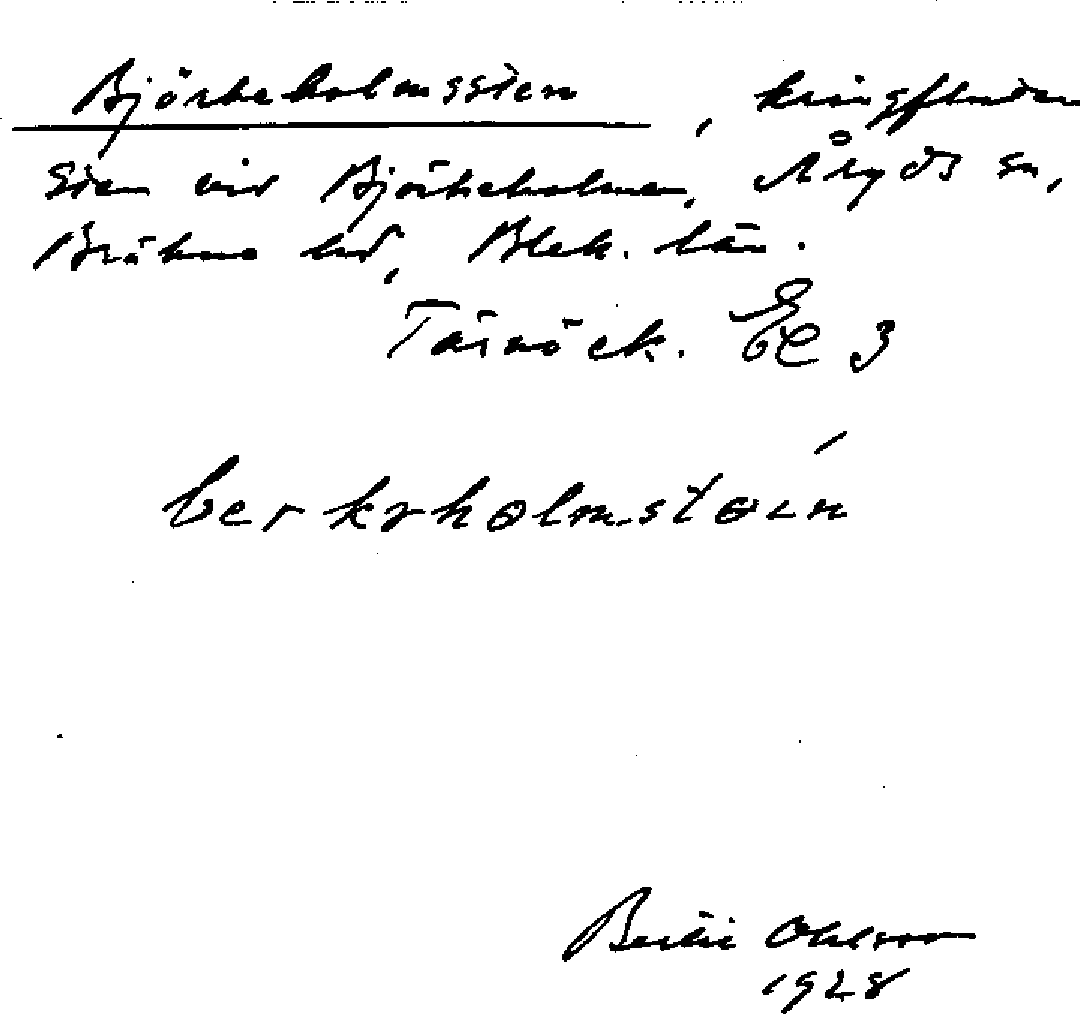 Björkeholmssten, kringfluten
sten vid Björkeholmen, Åryds sn,
Bräkne hd, Blek. län.
Tärnö ek. Bl 3
berkrholmstɵin
Bertil Ohlsson
1928